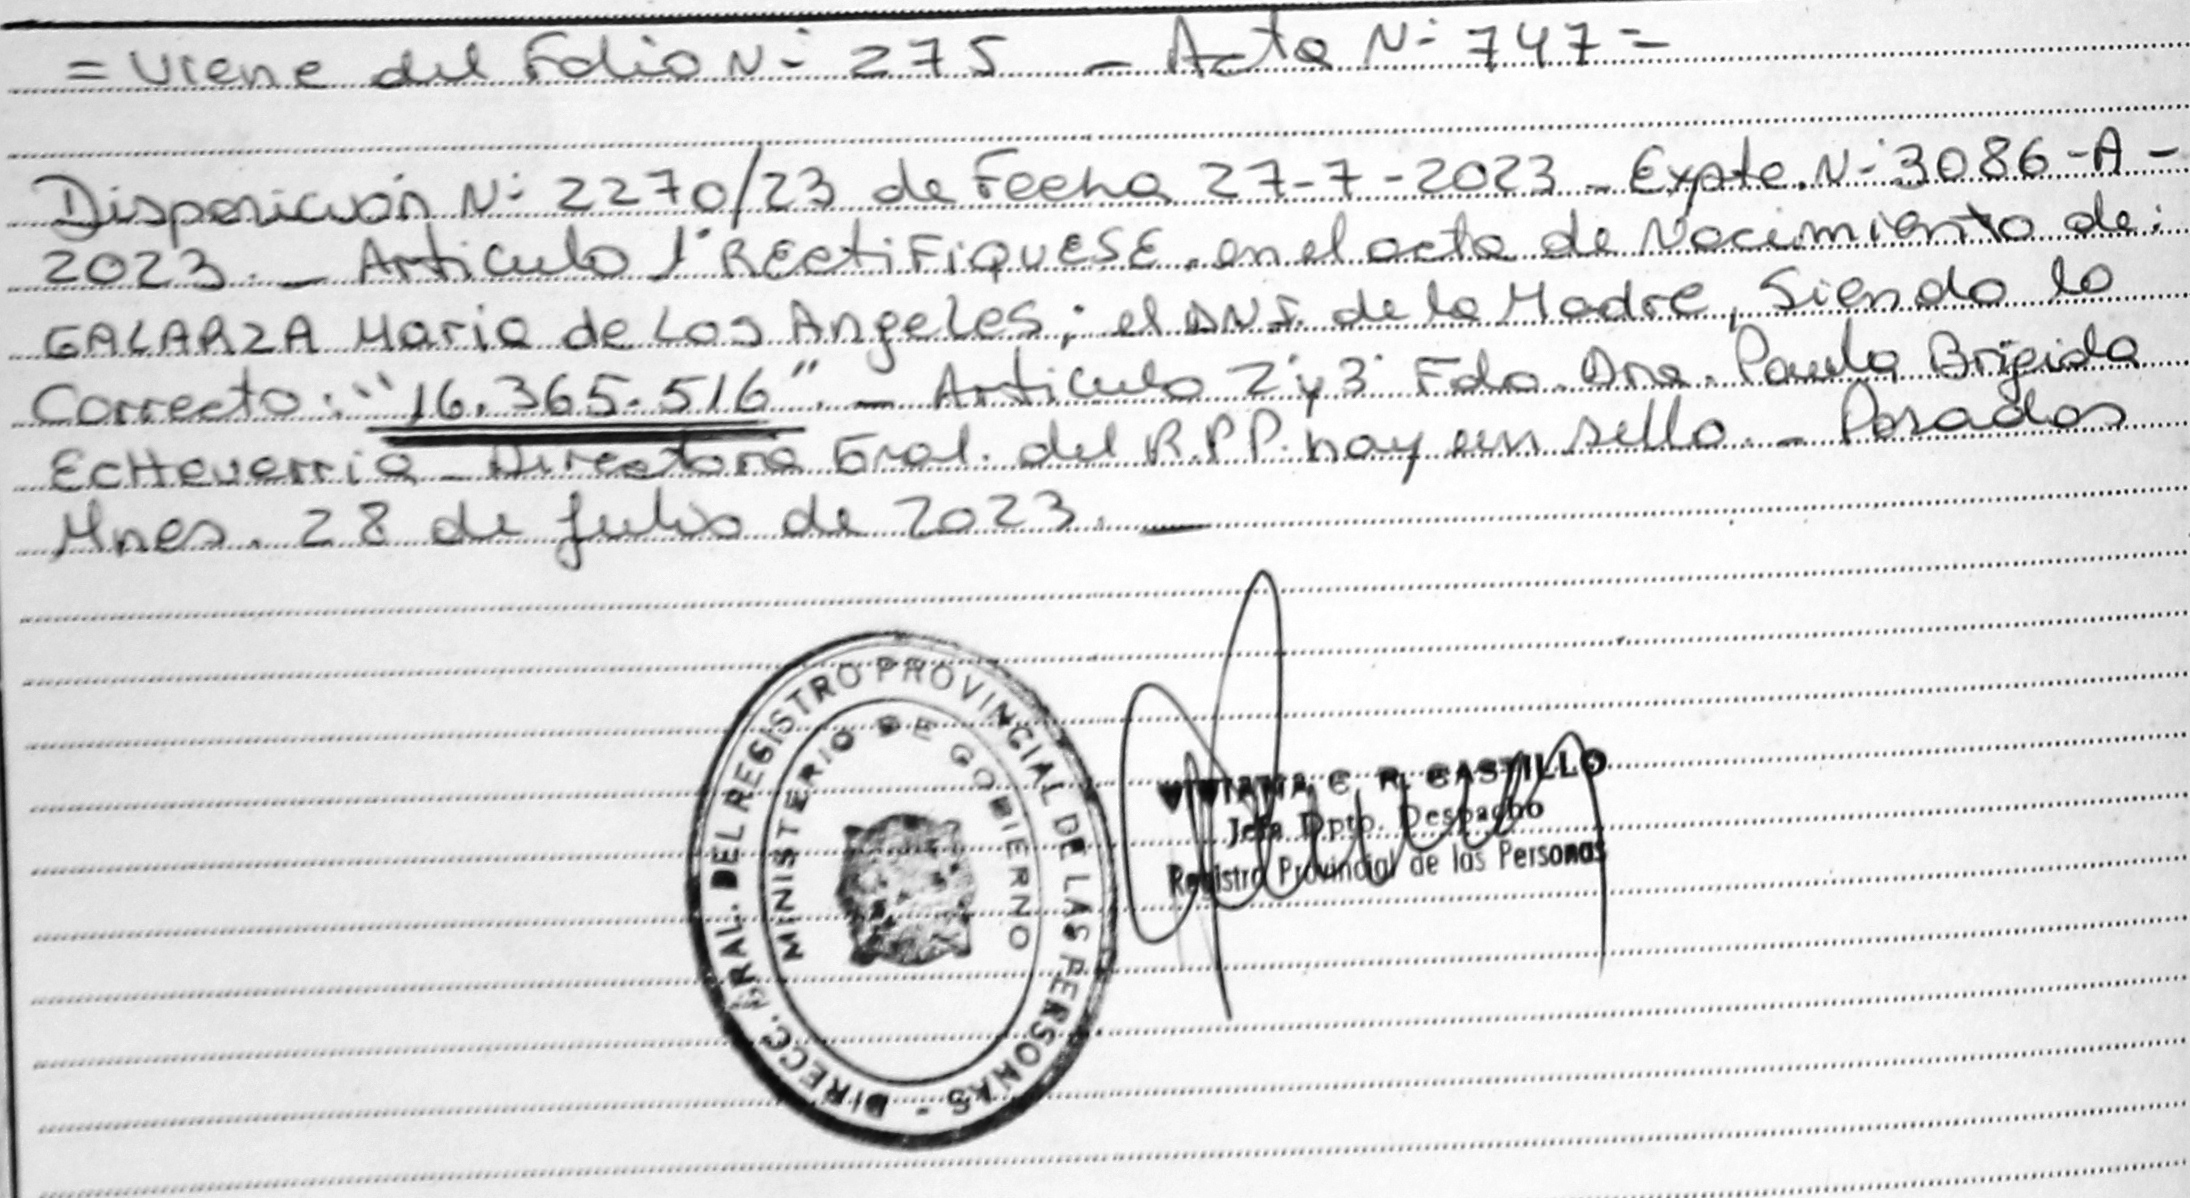 = Viene del Folio N- 275 - Acta N- 747 =
Disposición N- 2270/23 de Fecha 27-7-2023 - Expte. N- 3086-A-
2023. - Articulo 1° RECTIFIQUESE, en el acta de Nacimiento de:
GALARZA Maria de Los Angeles; el DNI. de la Madre, Siendo lo
Correcto: "16.365.516". - Articulo 2° y 3° Fdo. Dra. Paula Brigida
EcHeverria - Directora Gral. del R.P.P. hay un sello. - Posadas
Mnes. 28 de Julio de 2023. -
DIRECC. GRAL. DEL REGISTRO PROVINCIAL DE LAS PERSONAS -
MINISTERIO DE GOBIERNO
VIVIANA C. R. CASTILLO
Jefa Dpto. Despacho
Registro Provincial de las Personas